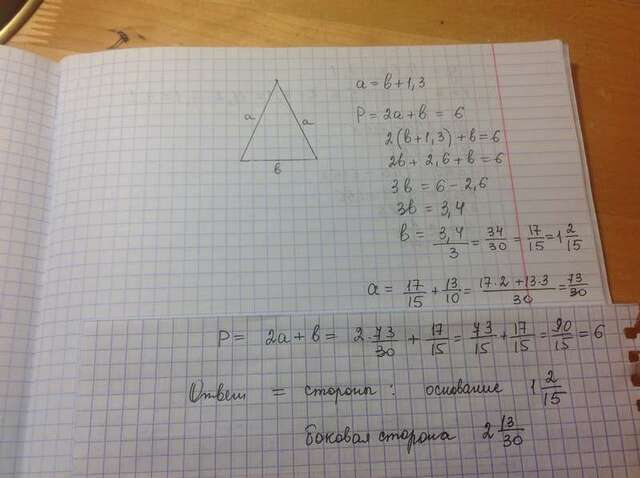 a = в + 1,3
P = 2a + в = 6
2(в + 1,3) + в = 6
2в + 2,6 + в = 6
3в = 6 - 2,6
3в = 3,4
в = 3,4/3 = 34/30 = 17/15 = 1 2/15
a = 17/15 + 13/10 = (17·2 + 13·3)/30 = 73/30
a
a
в
P = 2a + в = 2·73/30 + 17/15 = 73/15 + 17/15 = 90/15 = 6
Ответ = стороны: основание 1 2/15
боковая сторона 2 13/30